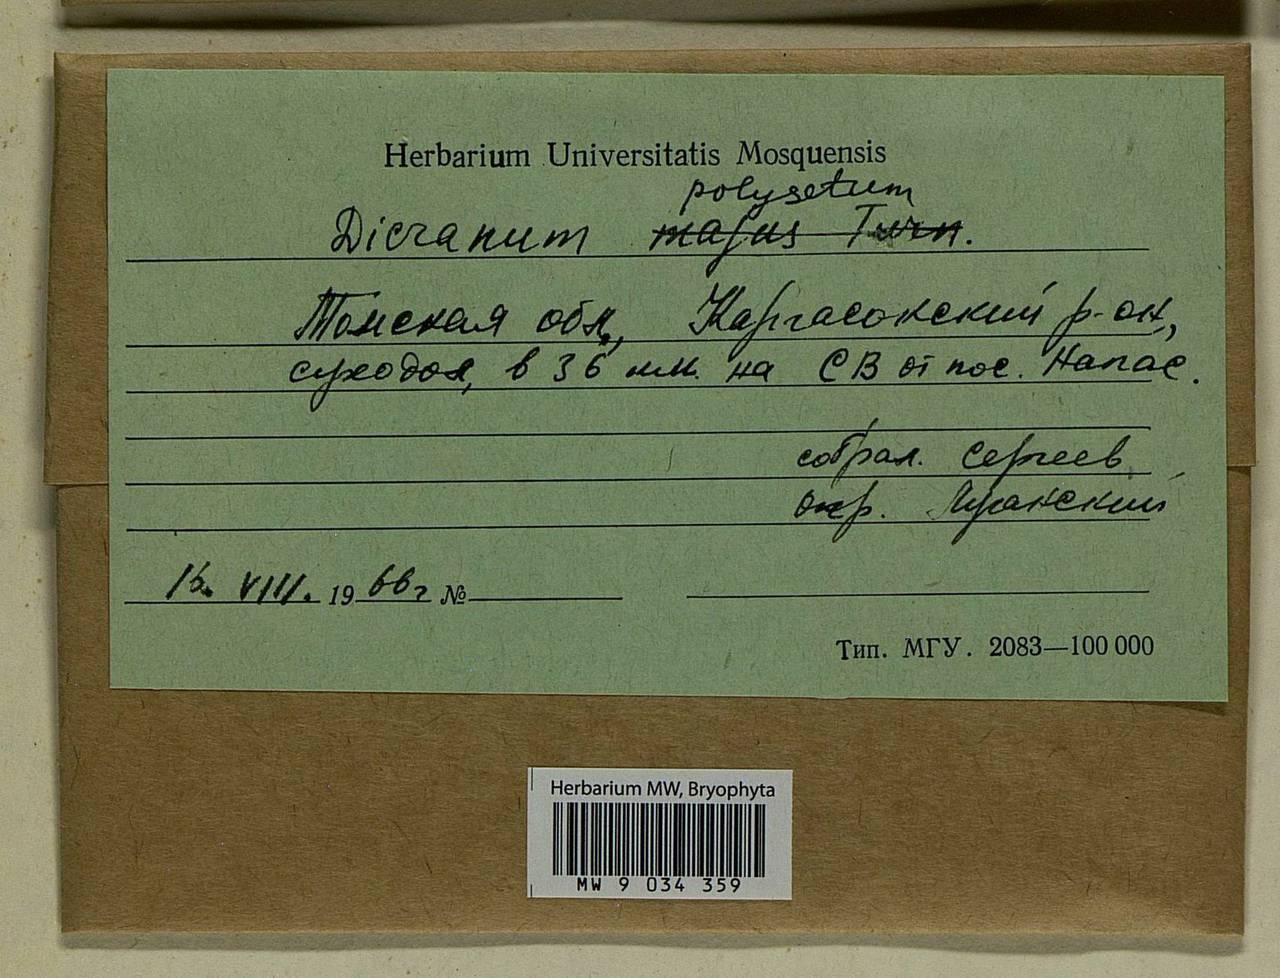 Herbarium Universitatis Mosquensis
polysetum
Dicranum majus Turn.
Томская обл., Каргасокский р-он,
суходол, в 36 км. на СВ от пос. Напас.
собрал. Сергеев
опр. Лучанский
16. VIII. 1966 г №
Тип. МГУ. 2083—100 000
Herbarium MW, Bryophyta
MW 9 034 359